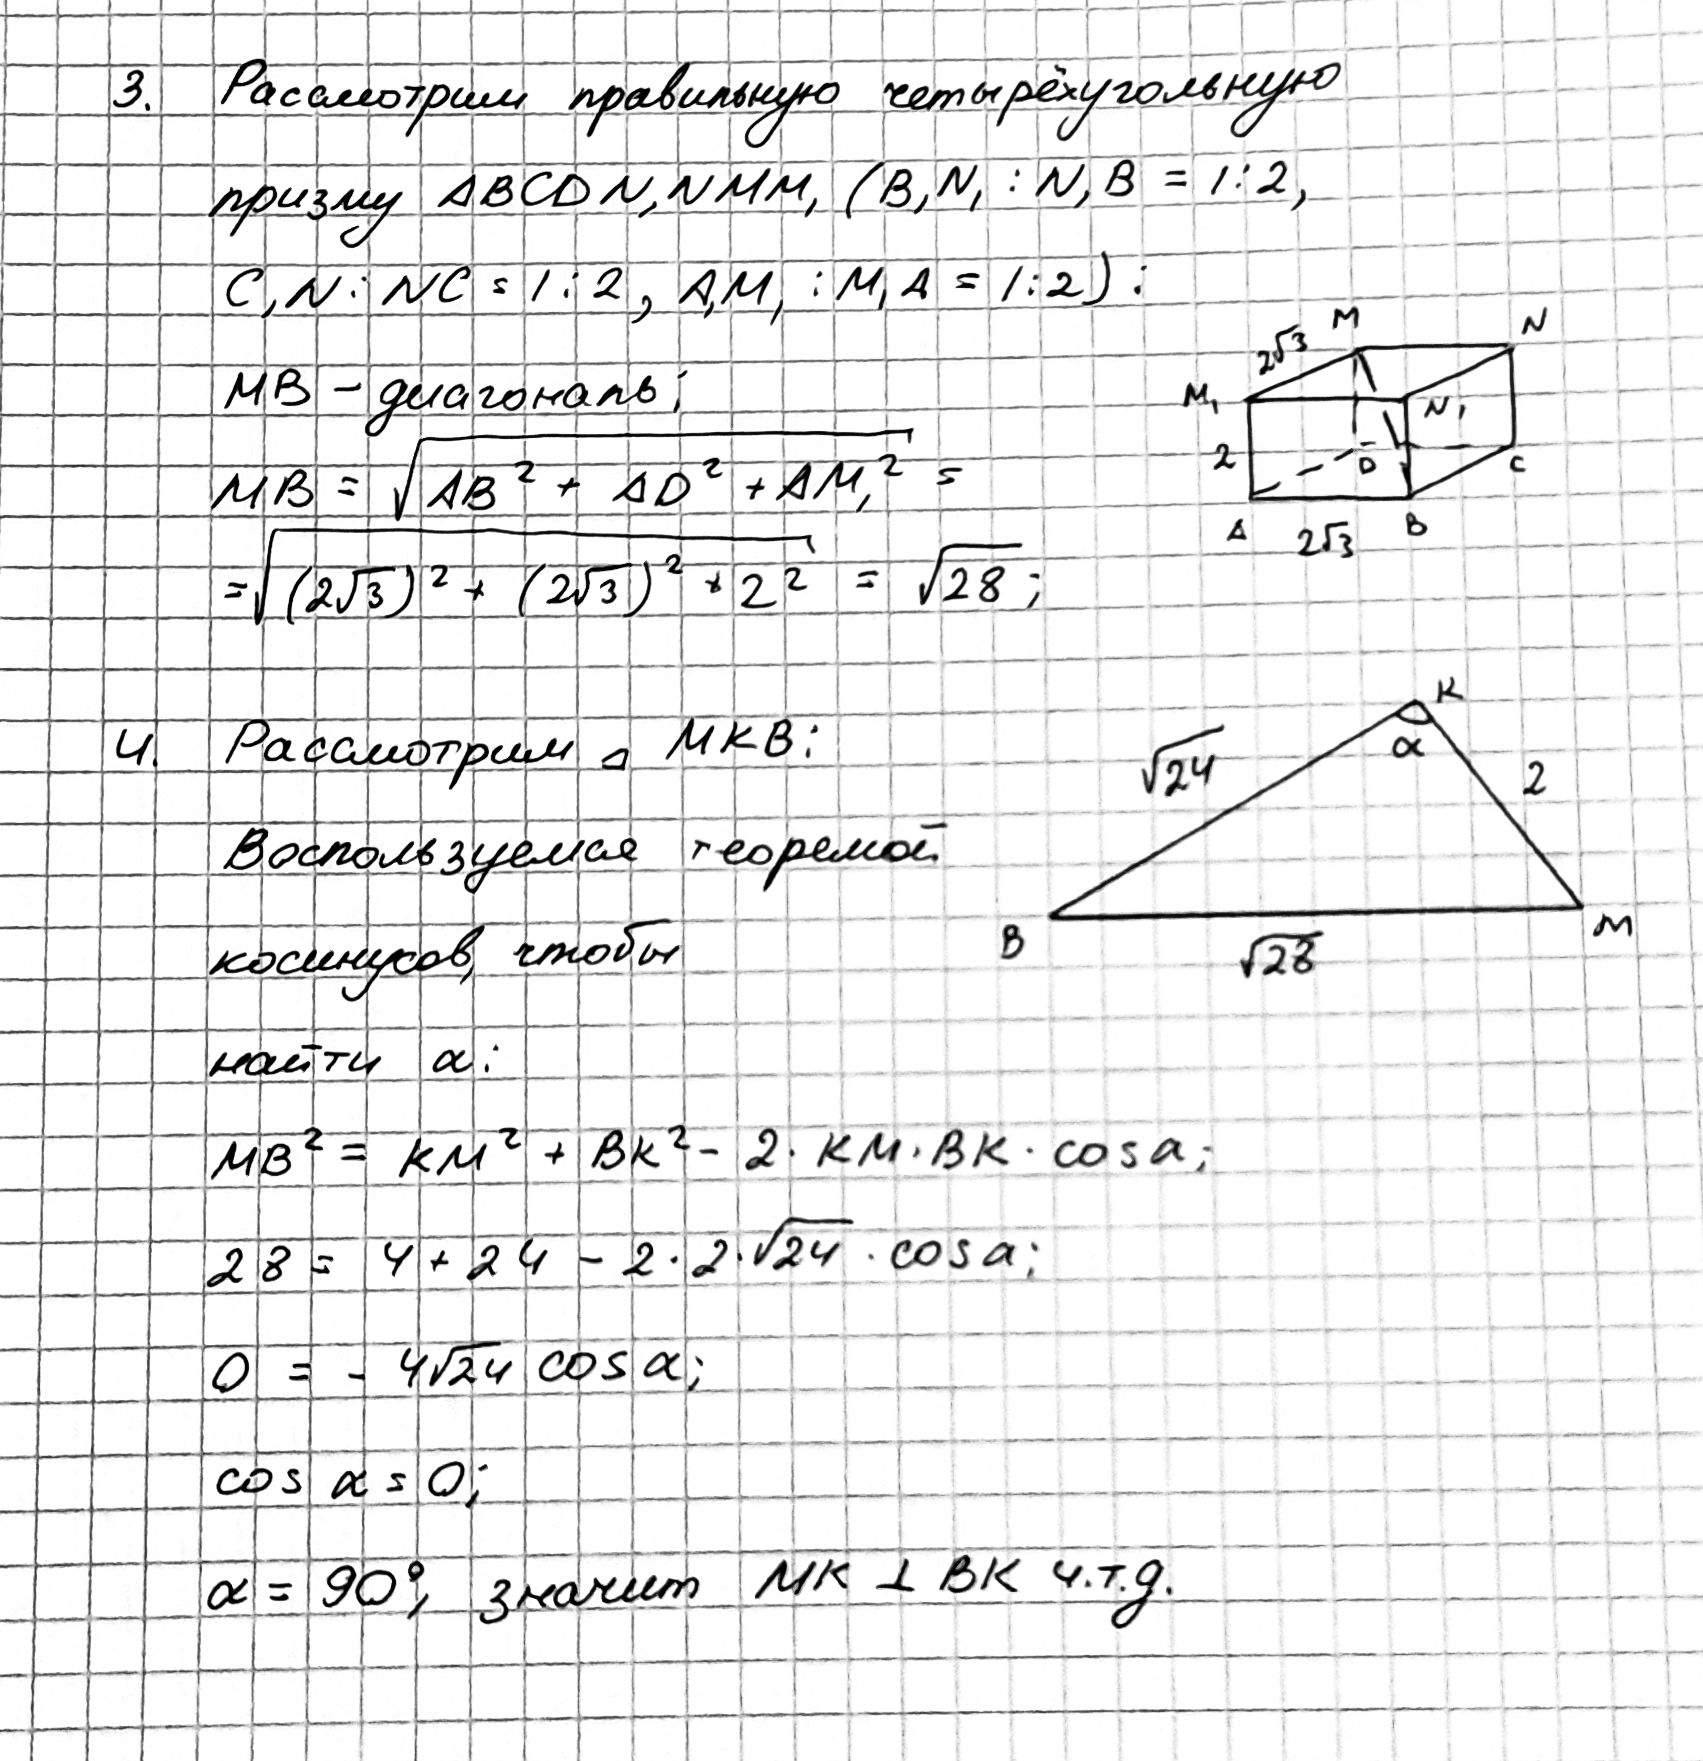 3. Рассмотрим правильную четырёхугольную
призму ABCDN₁NMM₁ (B₁N₁ : N₁B = 1:2,
C₁N : NC = 1:2, A₁M₁ : M₁A = 1:2) :
MB – диагональ;
MB = √(AB² + AD² + AM₁²) =
= √((2√3)² + (2√3)² + 2²) = √28;
M
N
2√3
M₁
N₁
2
D
C
A
2√3
B
4. Рассмотрим △ MKB:
Воспользуемся теоремой
косинусов, чтобы
найти α:
K
α
√24
2
B
√28
M
MB² = KM² + BK² - 2 · KM · BK · cos α;
28 = 4 + 24 - 2 · 2 · √24 · cos α;
0 = - 4√24 cos α;
cos α = 0;
α = 90°, значит MK ⊥ BK ч.т.д.